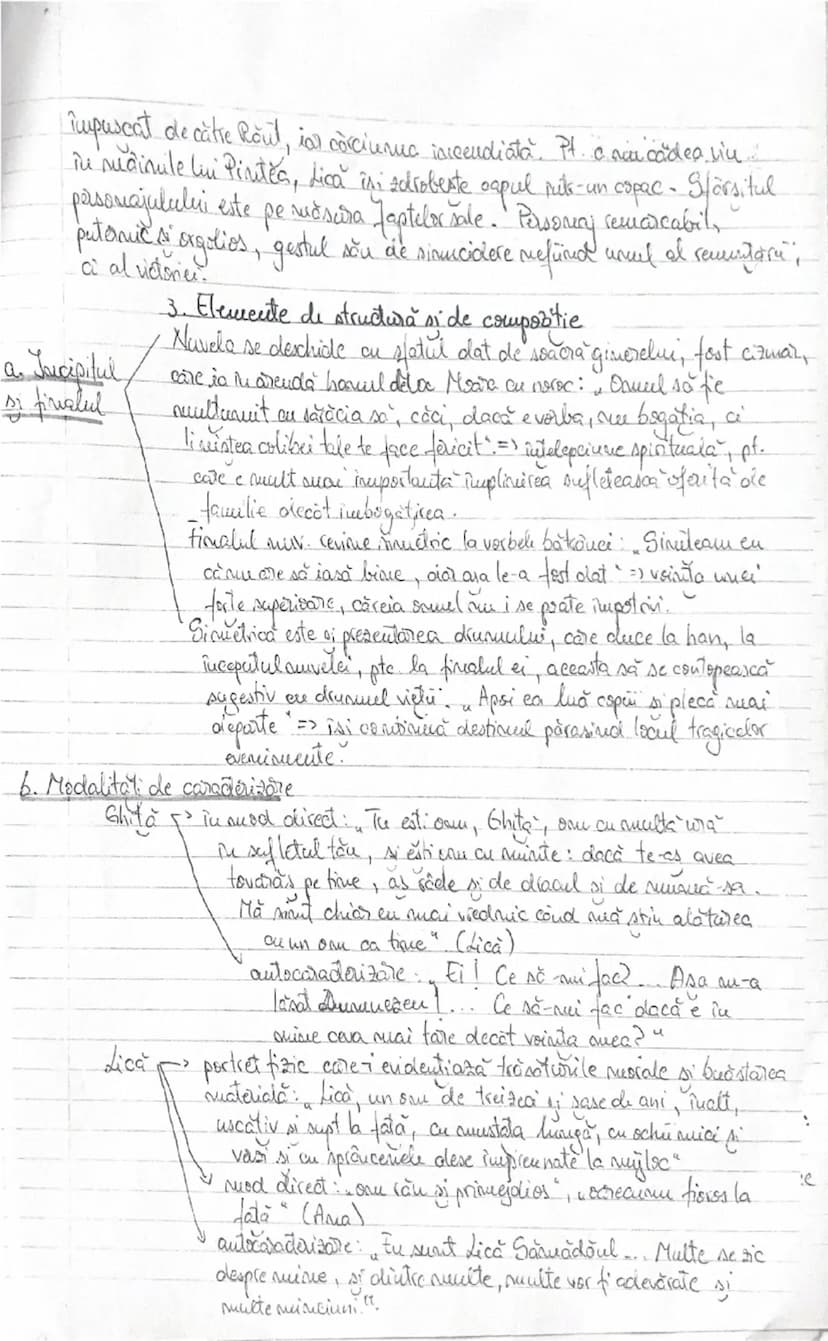 împuscat de către Răul, iar cârciuma incendiată. Pt. a nu cădea viu
în mâinile lui Pintea, Lică își zdrobește capul într-un copac. Sfârșitul
personajului este pe măsura faptelor sale. Personaj remarcabil,
puternic și orgolios, gestul său de sinucidere nefiind unul al renunțării,
ci al victoriei.
3. Elemente de structură și de compoziție
a. Incipitul
și finalul
Nuvela se deschide cu sfatul dat de soacră ginerelui, fost cizmar,
care ia în arendă hanul de la Moara cu noroc: „Omul să fie
mulțumit cu sărăcia sa, căci, dacă e vorba, nu bogăția, ci
liniștea colibei tale te face fericit" => înțelepciune spirituală, pt.
care e mult mai importantă împlinirea sufletească oferită de
familie decât îmbogățirea.
Finalul nuv. revine simetric la vorbele bătrânei: „Simțeam eu
că nu are să iasă bine, dar așa le-a fost dat" => voința unei
forțe superioare, căreia omul nu i se poate împotrivi.
Simetrică este și prezentarea drumului, care duce la han, la
începutul nuvelei, ptc. la finalul ei, aceasta să se contopească
sugestiv cu drumul vieții. „Apoi ea luă copiii și plecă mai
departe" => își continuă destinul părăsind locul tragicelor
evenimente.
b. Modalități de caracterizare
Ghiță -> în mod direct: „Tu ești om, Ghiță, om cu multă ură
în sufletul tău, și ești om cu minte: dacă te-aș avea
tovarăș pe tine, aș râde și de dracul și de mumă-sa.
Mă simt chiar eu mai vrednic când mă știu alăturea
cu un om ca tine" (Lică)
autocaracterizare: „Ei! Ce să-mi fac?... Așa m-a
lăsat Dumnezeu!... Ce să-mi fac dacă e în
mine ceva mai tare decât voința mea?"
Lică -> portret fizic care-i evidențiază trăsăturile morale și bunăstarea
materială: „Lică, un om de treizeci și șase de ani, înalt,
uscățiv și supt la față, cu mustața lungă, cu ochii mici și
verzi și cu sprâncenele dese împreunate la mijloc"
mod direct: „om rău și primejdios", „oarecum fioros la
față" (Ana)
autocaracterizare: „Eu sunt Lică Sămădăul... Multe se zic
despre mine, și dintre multe, multe vor fi adevărate și
multe minciuni."